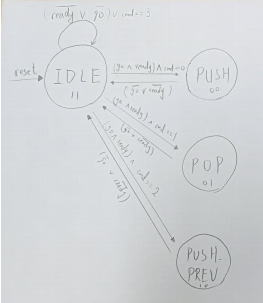 (r̅e̅a̅d̅y̅ ∨ g̅o̅) ∨ cmd=3
reset
IDLE
11
(go ∧ ready) ∧ cmd=0
(g̅o̅ ∨ r̅e̅a̅d̅y̅)
PUSH
00
(go ∧ ready) ∧ cmd=1
(g̅o̅ ∨ r̅e̅a̅d̅y̅)
POP
01
(go ∧ ready) ∧ cmd=2
(g̅o̅ ∨ r̅e̅a̅d̅y̅)
PUSH_
PREV
10